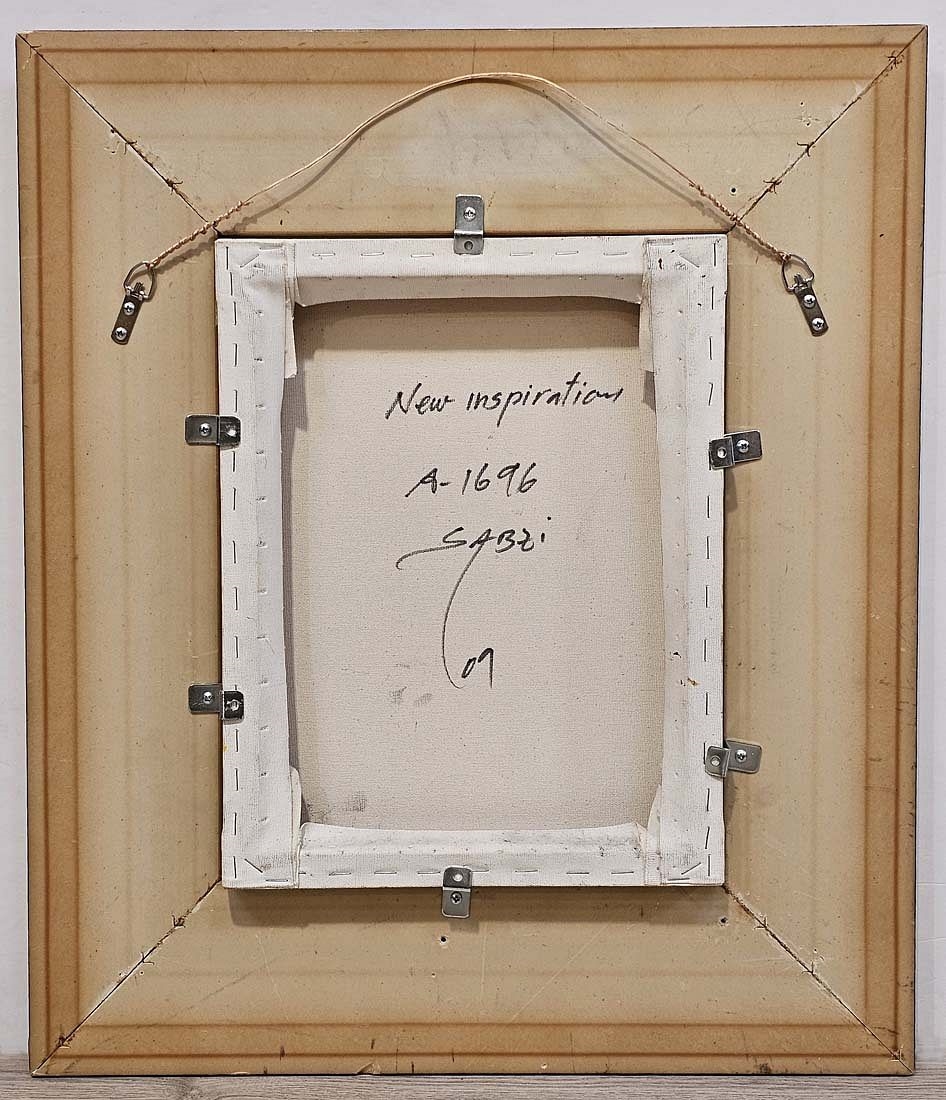 New inspiration
A-1696
SABZi
09